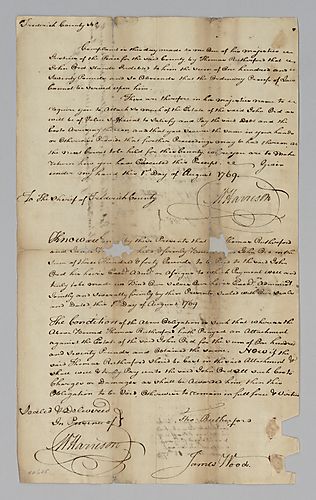 Frederick County Sct
Complaint is this day made to me One of his Majesties
Justices of the Peace for the said County by Thomas Rutherford that
John Bod Stands Indebted to him the Sum of One hundred and
Seventy Pounds, and So Absconds that the Ordinary Process of Law
Cannot be Served upon him
These are therefore in his Majesties name to
require you to Attach So much of the Estate of the said John Bod as
will be of Value Sufficient to Satisfy and Pay the said Debt and the
Costs Accruing thereon, and that you Secure the Same in your hands
or Otherwise Provide that further Proceedings may be had thereon at
the Next Court to be held for this County when you are to Make
return how you have Executed this Precept. Given
under my hand this 1st Day of August 1769.
To The Sherif of Frederick County
Harrison
Know all men by these Presents that Thomas Rutherford
and James firmly Bound John Bod in the
Sum of three Hundred & forty Pounds to be Paid to the said John
Bod his heirs Exors Admrs or Assigns to which Payment well and
truly to be made we Bind Our Selves Our heirs Exors Admrs
Jointly and Severally firmly by these Presents, Sealed with Our Seals
and Dated this 1st Day of August 1769
The Condition of the Above Obligation is Such that whereas the
Above Bound Thomas Rutherford hath Prayed an Attachment
against the Estate of the said John Bod for the Sum of One hundred
and Seventy Pounds and Obtained the Same. Now if the
said Thomas Rutherford Should be Cast in the said Attachment &
shall well & truly Pay unto the said John Bod All such Costs
Charges or Damages as shall be Awarded him then this
Obligation to be Void Otherwise to remain in full force & Virtue
Sealed & Delivered
In Presence of
Harrison
Tho Rutherford
James Wood